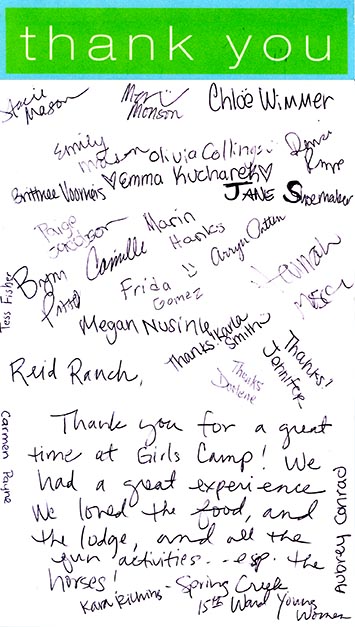 thank you
Stacie Mason
Monson
Chloë Wimmer
Emily
Olivia Collings
Emma Kucharek
Brittnee
JANE Shoemaker
Paige
Marin Hanks
Camille
Bryn
Frida Gomez
Hannah
Tess Fisher
Megan Nusink
Thanks! Karla Smith
Thanks! Jennifer
Thanks Darlene
Reid Ranch,
Carmen Payne
Thank you for a great
time at Girls Camp! We
had a great experience
We loved the food, and
the lodge, and all the
fun activities... esp. the
horses!
Aubrey Conrad
Kara - Spring Creek
15th Ward Young
Women